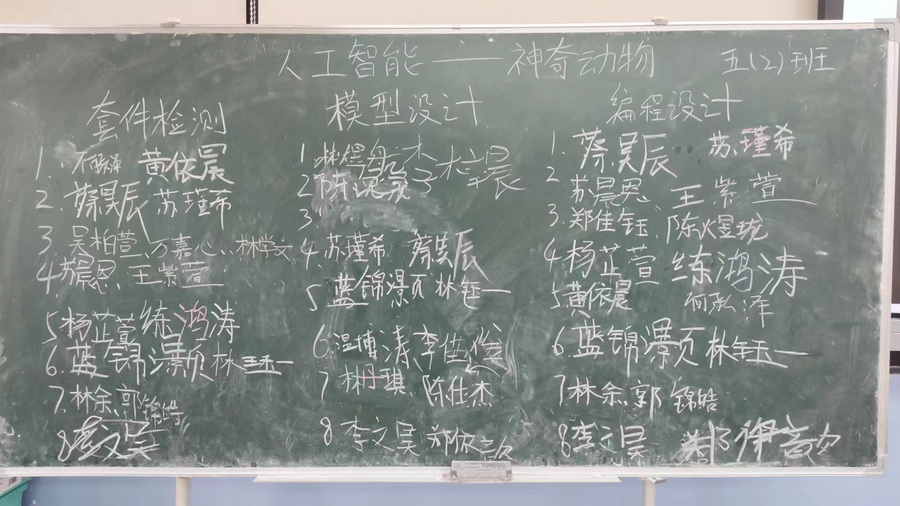 人工智能——神奇动物 五(2)班
套件检测
1. 黄依晨
2. 蔡昊辰 苏瑾希
3. 吴柏萱、万嘉心、林学文
4. 苏晨恩、王紫萱
5 杨芷萱 练鸿涛
6. 蓝锦灏 林钰一
7. 林余、郭锦皓
8 李文昊
模型设计
1
2
3
4. 苏瑾希 蔡昊辰
5 蓝锦灏 林钰一
6. 温博涛、李佳俊
7 林丹琪、陈仕杰
8 李文昊 郑依歆
编程设计
1. 蔡昊辰 苏瑾希
2. 苏晨恩 王紫萱
3. 郑佳钰、陈煜珑
4. 杨芷萱 练鸿涛
5 黄依晨
6. 蓝锦灏 林钰一
7 林余、郭锦皓
8. 李文昊